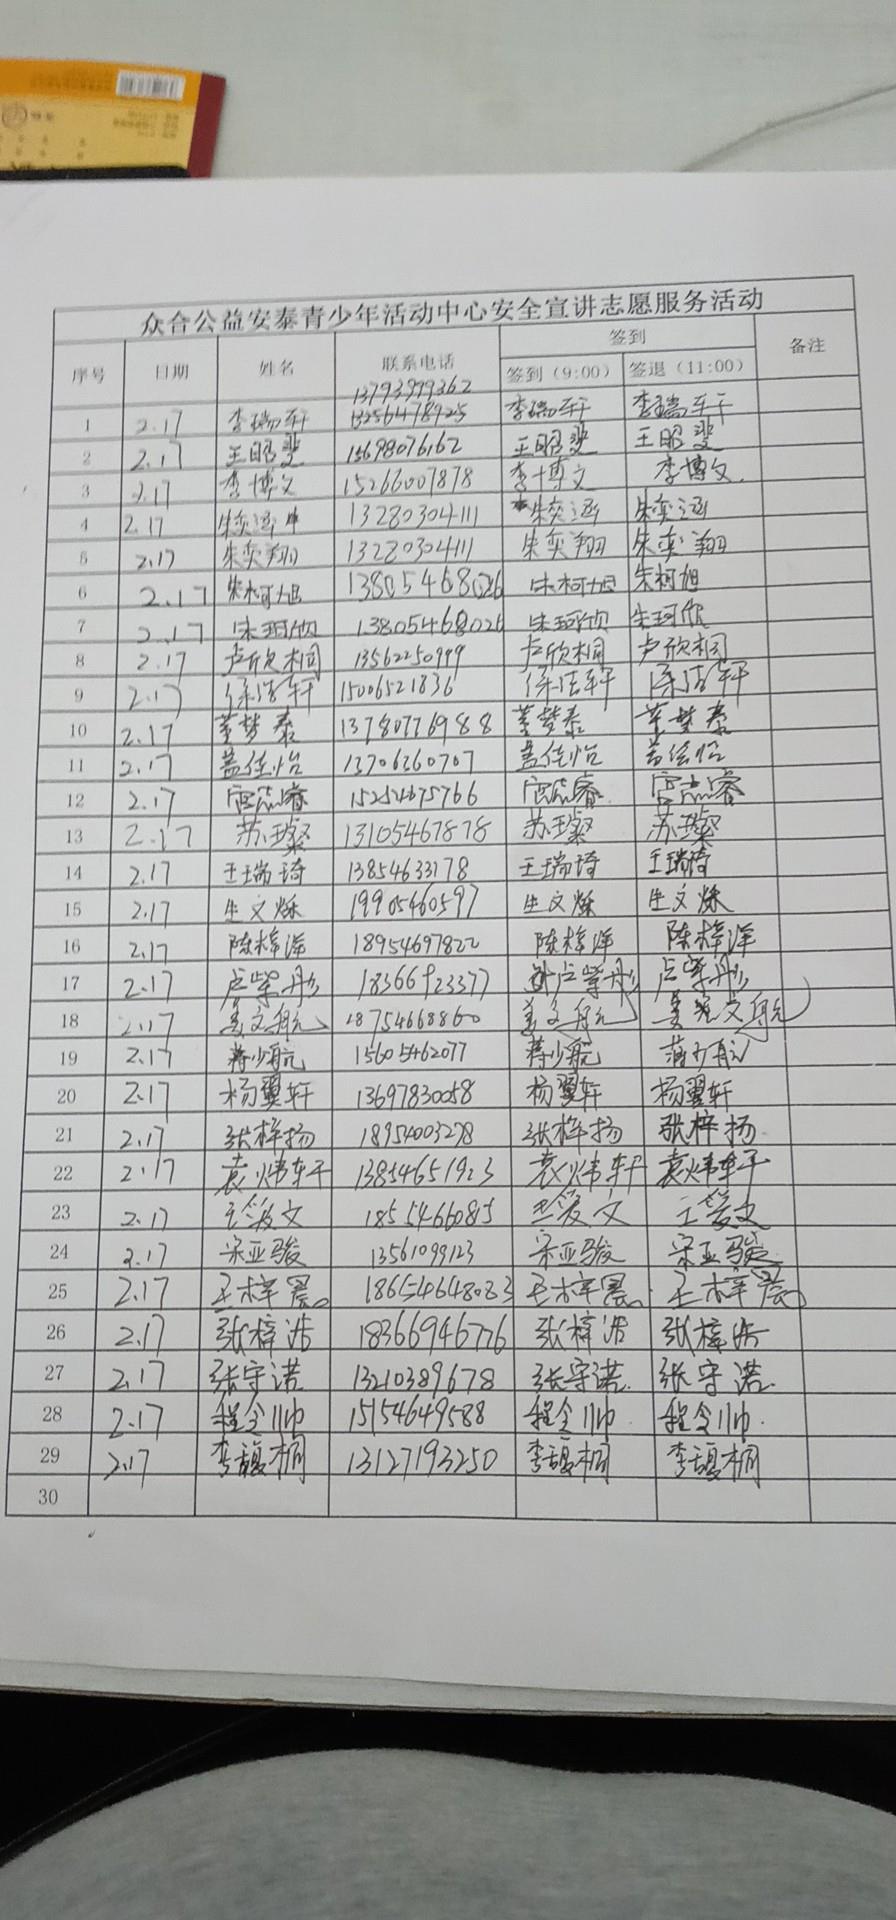 众合公益安泰青少年活动中心安全宣讲志愿服务活动
序号 日期 姓名 联系电话 签到 备注
签到（9:00） 签退（11:00）
13793999362
1 2.17 李瑞轩 13256478925 李瑞轩 李瑞轩
2 2.17 王昭斐 15698076162 王昭斐 王昭斐
3 2.17 李博文 15266007878 李博文 李博文
4 2.17 朱奕涵 13280304111 朱奕涵 朱奕涵
5 2.17 朱奕翔 13280304111 朱奕翔 朱奕翔
6 2.17 朱柯旭 13805468026 朱柯旭 朱柯旭
7 2.17 朱珂欣 13805468026 朱珂欣 朱珂欣
8 2.17 卢欣桐 13562250999 卢欣桐 卢欣桐
9 2.17 徐浩轩 15006521836 徐浩轩 徐浩轩
10 2.17 董梦泰 13780776988 董梦泰 董梦泰
11 2.17 盖佳怡 13706360707 盖佳怡 盖佳怡
12 2.17 宫志睿 15254675766 宫志睿 宫志睿
13 2.17 苏璨 13105467878 苏璨 苏璨
14 2.17 王瑞琦 13854633178 王瑞琦 王瑞琦
15 2.17 生文烁 19905460597 生文烁 生文烁
16 2.17 陈梓洋 18954697822 陈梓洋 陈梓洋
17 2.17 卢紫彤 18366923377 卢紫彤 卢紫彤
18 2.17 姜文航 18754668860 姜文航 姜文航
19 2.17 蒋少航 15605462077 蒋少航 蒋少航
20 2.17 杨翼轩 13697830058 杨翼轩 杨翼轩
21 2.17 张梓扬 18954003278 张梓扬 张梓扬
22 2.17 袁炜轩 13854651923 袁炜轩 袁炜轩
23 2.17 18554660815
24 2.17 宋亚骏 13561099123 宋亚骏 宋亚骏
25 2.17 王梓晨 18654648083 王梓晨 王梓晨
26 2.17 张梓浩 18366946776 张梓浩 张梓浩
27 2.17 张守诺 13210389678 张守诺 张守诺
28 2.17 程令帅 15154649588 程令帅 程令帅
29 2.17 李馥桐 13127193250 李馥桐 李馥桐
30